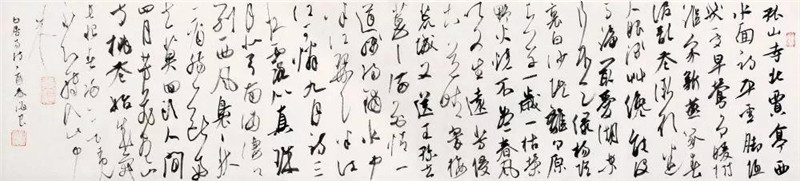 孤山寺北賈亭西
水面初平雲腳低
幾處早鶯爭暖樹
誰家新燕啄春
泥亂花漸欲迷
人眼淺草纔能沒
馬蹄最愛湖東
行不足綠楊陰
裏白沙堤離離原
上草一歲一枯榮
野火燒不盡春風
吹又生遠芳侵
古道晴翠接
荒城又送王孫去
萋萋滿別情一
道殘陽鋪水中
半江瑟瑟半江
紅可憐九月初三
夜露似真珠
月似弓南浦淒淒
別西風裊裊秋
一看腸一斷好
去莫回頭人間
四月芳菲盡山
寺桃花始盛開
長恨春歸無覓
處不知轉入此中
來
白居易詩